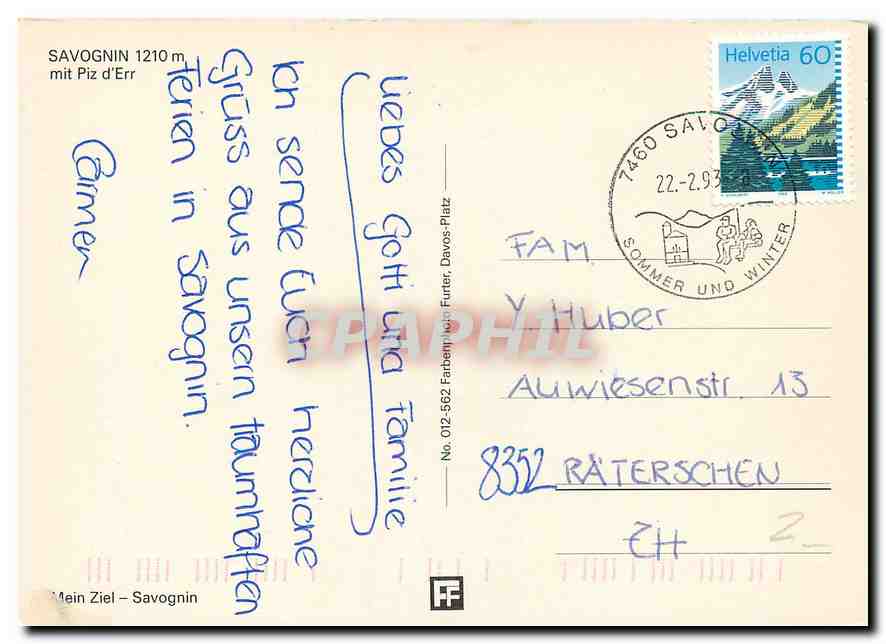 SAVOGNIN 1210 m
mit Piz d'Err
Liebes Gotti und Familie
Ich sende Euch herzliche
Grüss aus unsern traumhaften
Ferien in Savognin.
Carmen
No. 012-562 Farbenphoto Furter, Davos-Platz
Helvetia 60
7460 SAVOGNIN
22.-2.93
SOMMER UND WINTER
FAM.
Y. Huber
Auwiesenstr. 13
8352 RÄTERSCHEN
ZH
2.-
Mein Ziel – Savognin
FF
CPAPHIL